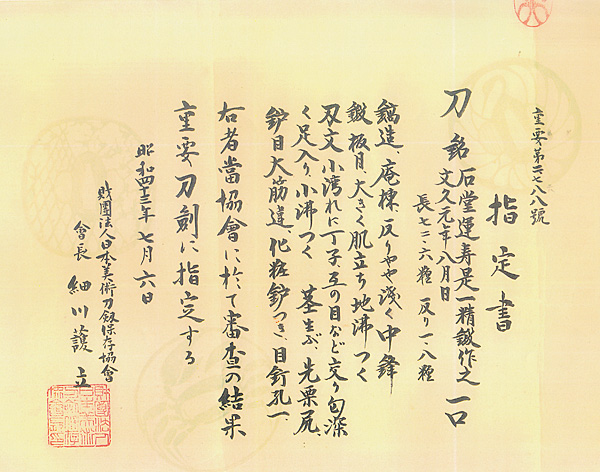 重要第二七八八號
指定書
刀 銘 石堂運寿是一精鍛作之 一口
文久元年八月日
長七二・六糎 反り一・八糎
鎬造、庵棟、反りやや浅く中鋒
鍛 板目 大きく肌立ち地沸つく
刃文 小湾れに丁子 互の目など交り匂深
く足入り、小沸つく 茎 生ぶ、先栗尻、
鑢目 大筋違 化粧鑢つき、目釘孔一、
右者當協會に於て審査の結果
重要刀剣に指定する
昭和四十三年七月六日
財團法人日本美術刀劔保存協會
會長 細川護立